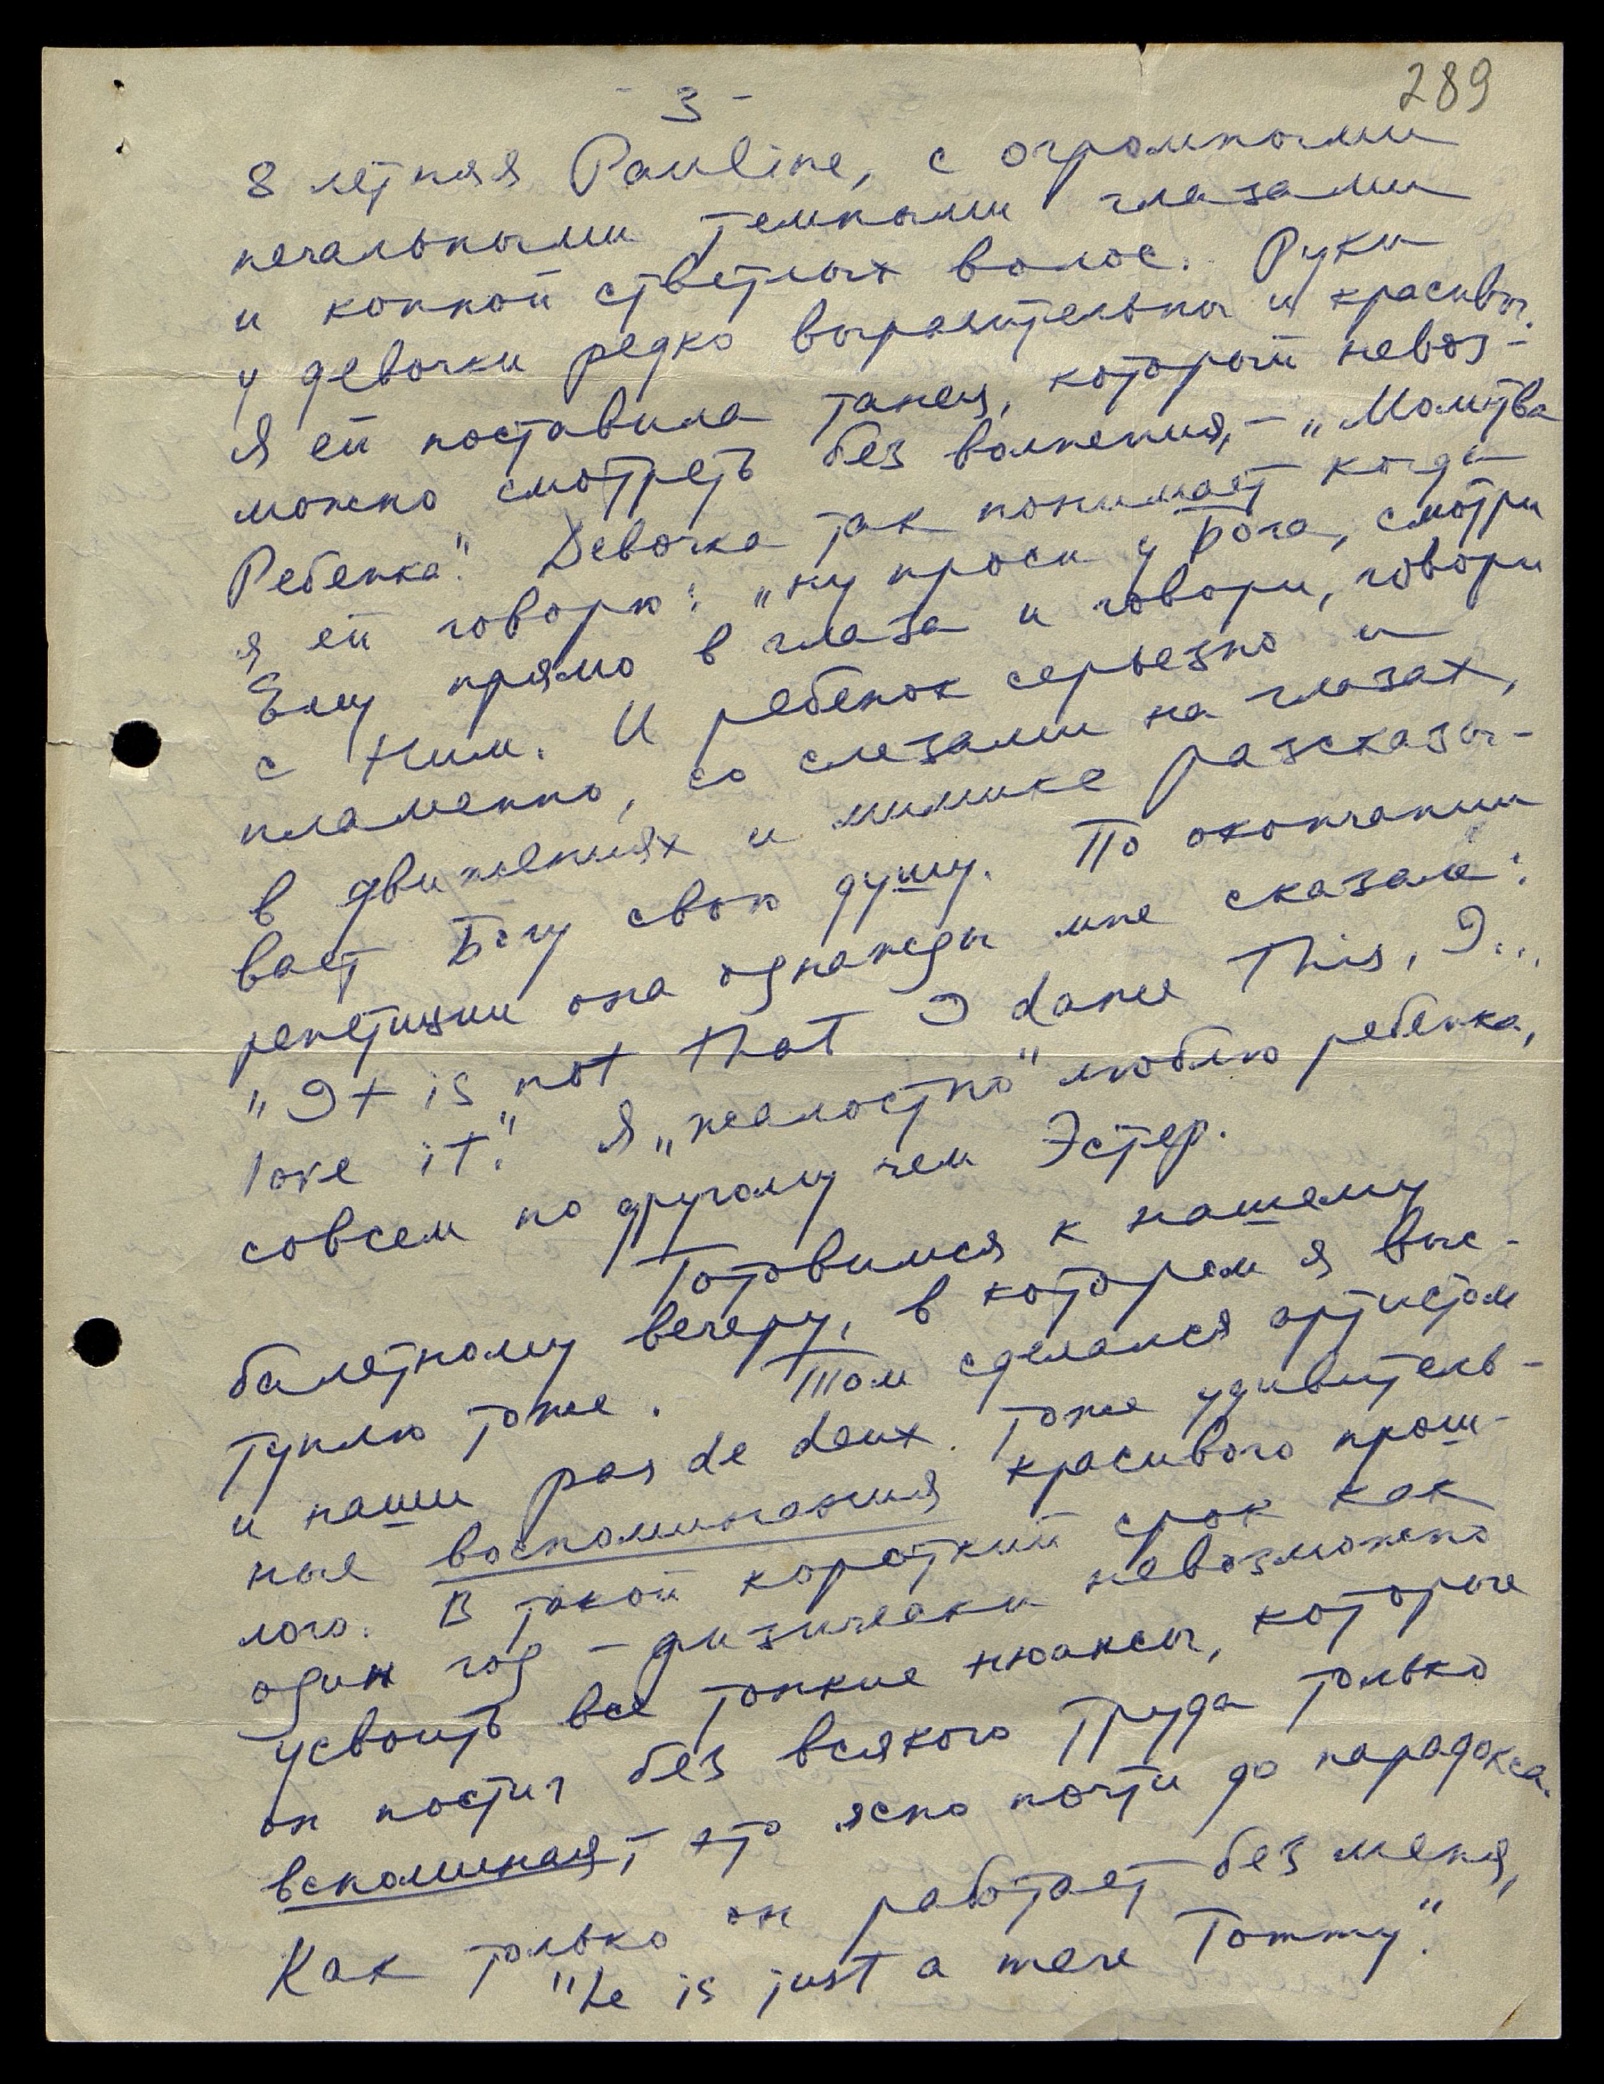 289
- 3 -
8 летняя Pauline, с огромными
печальными темными глазами
и копной светлых волос. Руки
у девочки редко выразительны и красивы.
Я ей поставила танец, который невоз-
можно смотреть без волнения, – „Молитва
Ребенка". Девочка так понимает когда
я ей говорю: „ну проси у Бога, смотри
Ему прямо в глаза и говори, говори
с Ним. И ребенок серьезно и
пламенно, со слезами на глазах,
в движениях и мимике разсказы-
вает Богу свою душу. По окончании
репетиции она однажды мне сказала:
„It is not that I dance This, I...
love it". Я „жалостно" люблю ребенка,
совсем по другому чем Эстер.
Готовимся к нашему
балетному вечеру, в котором я выс-
туплю тоже. Том сделался артистом
и наши pas de deux тоже удивитель-
ные воспоминания красивого прош-
лого. В такой короткий срок как
один год – физически невозможно
усвоить все тонкие нюансы, которые
он постиг без всякого труда только
вспоминая, это ясно почти до парадокса.
Как только он работает без меня,
"he is just a mere Tommy".